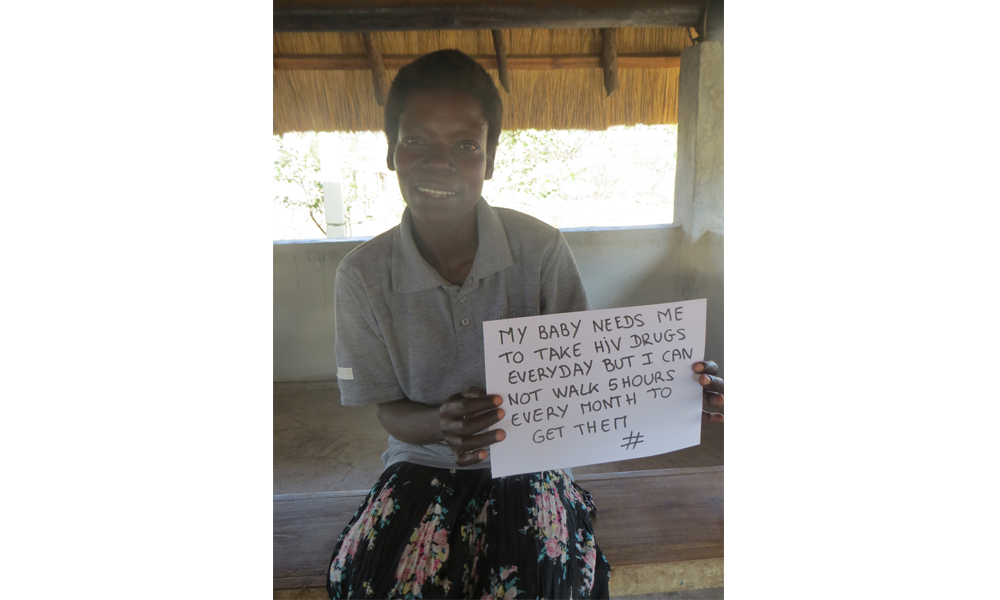 MY BABY NEEDS ME
TO TAKE HIV DRUGS
EVERYDAY BUT I CAN
NOT WALK 5 HOURS
EVERY MONTH TO
GET THEM
#